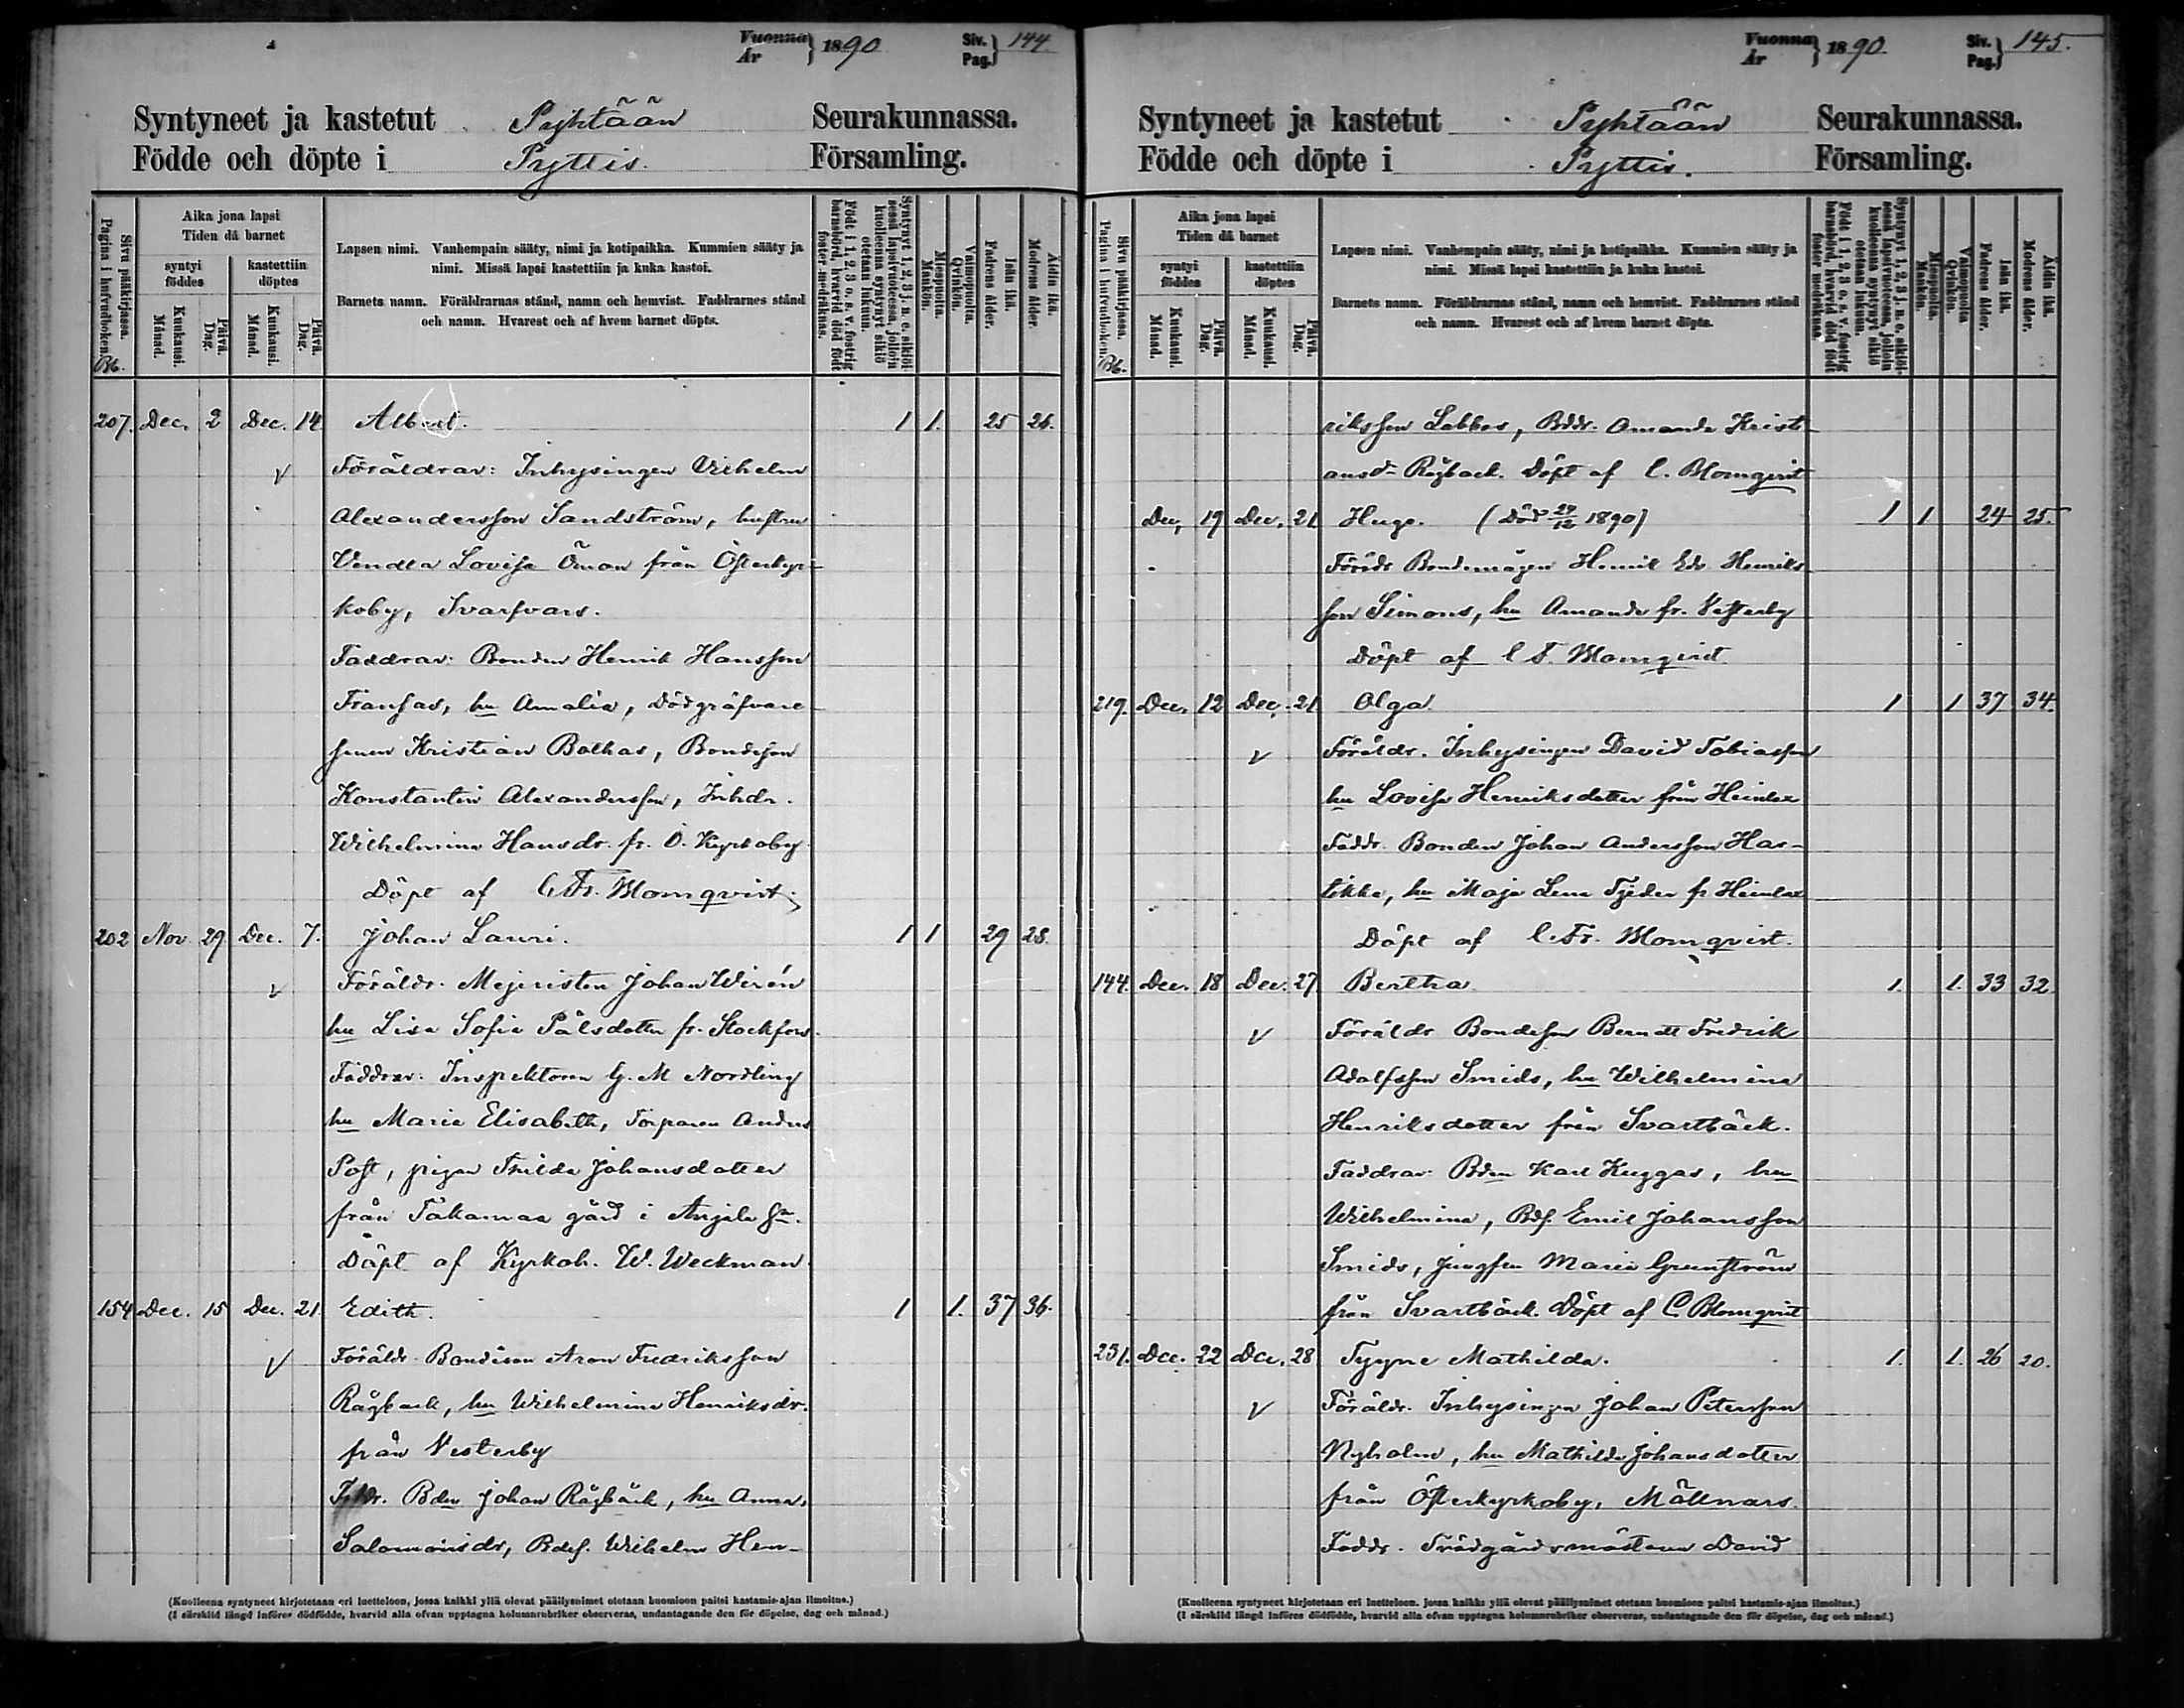 Vuonna
År } 1890 Siv.
Pag. } 144.
Syntyneet ja kastetut Pyhtään Seurakunnassa.
Födde och döpte i Pyttis. Församling.
Sivu pääkirjassa.
Pagina i hufvudboken. Bb.
Aika jona lapsi
Tiden då barnet
syntyi
föddes
kastettiin
döptes
Kuukausi.
Månad.
Päivä.
Dag.
Kuukausi.
Månad.
Päivä.
Dag.
Lapsen nimi. Vanhempain sääty, nimi ja kotipaikka. Kummien sääty ja
nimi. Missä lapsi kastettiin ja kuka kastoi.
Barnets namn. Föräldrarnas stånd, namn och hemvist. Faddrarnes stånd
och namn. Hvarest och af hvem barnet döpts.
Syntynyt 1, 2, 3 j. n. e. sikiöi-
sessä lapsivuoteessa, jolloin
kuolleena syntynyt sikiö
otetaan lukuun.
Född i 1, 2, 3 o. s. v. fostrig
barnsbörd, hvarvid död född
foster medräknas.
Miespuolia.
Mankön.
Vaimopuolia.
Qvinkön.
Isän ikä.
Fadrens ålder.
Äidin ikä.
Modrens ålder.
207. Dec. 2 Dec. 14 Albert. 1 1. 25 26.
Föräldrar: Inhysingen Vilhelm
Alexandersson Sandström, hustru
Vendla Lovisa Öman från Österkyr-
koby, Svarfvars.
Faddrar: Bonden Henrik Hansson
Fransas, hu Amalia, Dödgräfvare
sonen Kristian Balkas, Bondeson
Konstantin Alexandersson, Inhdr.
Wilhelmina Hansdr. fr. Ö. Kyrkoby.
Döpt af C. Fr. Blomqvist.
202 Nov 29 Dec. 7. Johan Lauri. 1 1 29 28.
Föräldr. Mejeristen Johan Wirén
hu Lisa Sofia Pålsdotter fr. Stockfors.
Faddrar: Inspektoren G. M Nordling
hu Maria Elisabeth, Torparen Anders
Post, pigan Thilda Johansdotter
från Takamaa gård i Anjala Sn.
Döpt af Kyrkoh. W. Weckman.
154 Dec. 15 Dec. 21. Edith. 1 1. 37 36.
Föräldr. Bondeson Aron Fredriksson
Rågback, hu Wilhelmina Henriksdr.
från Vesterby
Bden Johan Rågbäck, hu Anna,
Salomonsdr, Bdes. Wilhelm Hen-
(Kuolleena syntyneet kirjotetaan eri luetteloon, jossa kaikki yllä olevat päällysnimet otetaan huomioon paitsi kastamis-ajan ilmoitus.)
(I särskild längd införes dödfödde, hvarvid alla ofvan upptagna kolumnrubriker observeras, undantagande den för döpelse, dag och månad.)
Vuonna
År } 1890. Siv.
Pag. } 145.
Syntyneet ja kastetut Pyhtään Seurakunnassa.
Födde och döpte i Pyttis. Församling.
Sivu pääkirjassa.
Pagina i hufvudboken. Bb.
Aika jona lapsi
Tiden då barnet
syntyi
föddes
kastettiin
döptes
Kuukausi.
Månad.
Päivä.
Dag.
Kuukausi.
Månad.
Päivä.
Dag.
Lapsen nimi. Vanhempain sääty, nimi ja kotipaikka. Kummien sääty ja
nimi. Missä lapsi kastettiin ja kuka kastoi.
Barnets namn. Föräldrarnas stånd, namn och hemvist. Faddrarnes stånd
och namn. Hvarest och af hvem barnet döpts.
Syntynyt 1, 2, 3 j. n. e. sikiöi-
sessä lapsivuoteessa, jolloin
kuolleena syntynyt sikiö
otetaan lukuun.
Född i 1, 2, 3 o. s. v. fostrig
barnsbörd, hvarvid död född
foster medräknas.
Miespuolia.
Mankön.
Vaimopuolia
Qvinkön.
Isän ikä.
Fadrens ålder.
Äidin ikä.
Modrens ålder.
riksson Labbas, Bddr. Amanda Kristi
ansdr Rågback. Döpt af C. Blomqvist
Dec, 19 Dec. 21 Hugo. (Död 29/12 1890) 1 1 24 25.
Förädr Bondemågen Henrik Edv. Henriks
son Simons, hu Amanda fr. Vesterby
Döpt af C F. Blomqvist
219. Dec. 12 Dec. 21 Olga. 1 1 37 34.
Föräldr. Inhysingen David Tobiasson
hu Lovisa Henriksdotter från Heinlax
Faddr. Bonden Johan Andersson Has-
tikka, hu Maja Lena Tjeder fr Heinlax
Döpt af C. Fr. Blomqvist.
144. Dec. 18 Dec. 27 Bertha 1. 1. 33 32.
Föräldr Bondeson Berndt Fredrik
Adolfsson Smids, hu Wilhelmina
Henriksdotter från Svartbäck.
Faddrar: Bden Karl Kuggas, hu
Wilhelmina, Bdf. Emil Johansson
Smids, jungfru Maria Grunström
från Svartbäck. Döpt af C. Blomqvist
251. Dec. 22 Dec. 28 Tyyne Mathilda. 1. 1. 26 20.
Föräldr. Inhysingen Johan Petersson
Nyholm, hu Mathilda Johansdotter
från Österkyrkoby, Mållnars.
Faddr. Trädgårdsmästaren David
(Kuolleena syntyneet kirjotetaan eri luetteloon, jossa kaikki yllä olevat päällysnimet otetaan huomioon paitsi kastamis-ajan ilmoitus.)
(I särskild längd införes dödfödde, hvarvid alla ofvan upptagna kolumnrubriker observeras, undantagande den för döpelse, dag och månad.)